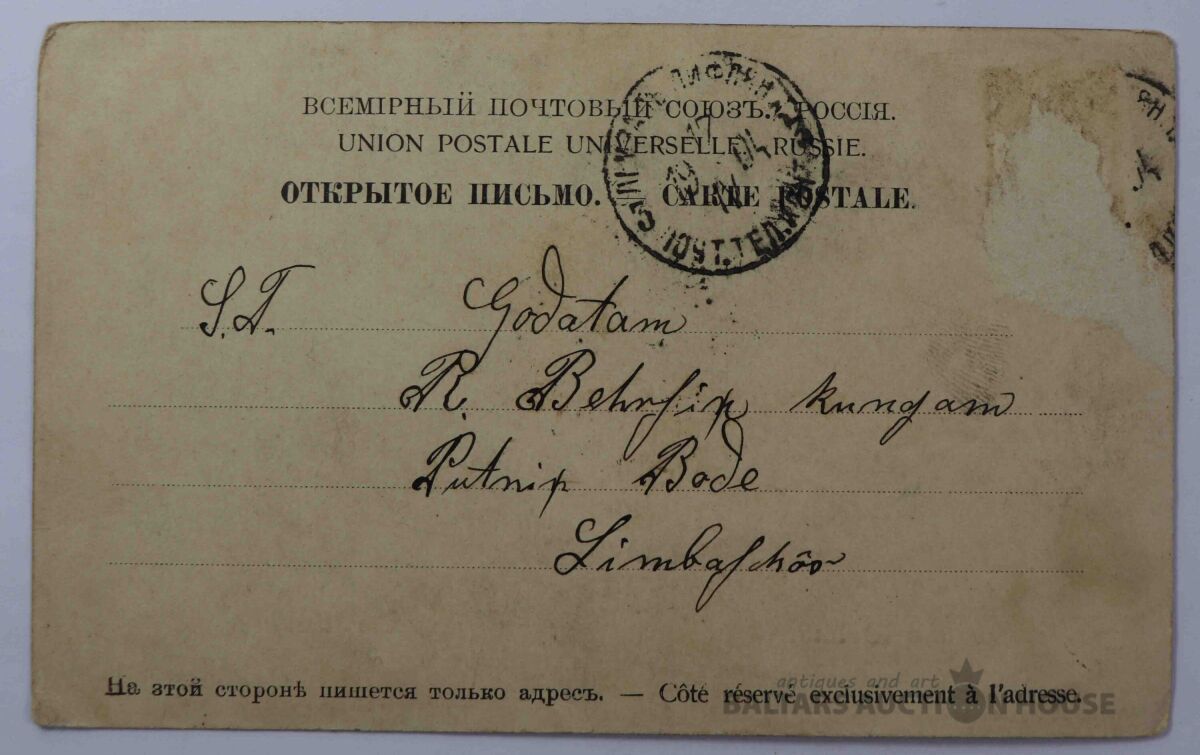 ВСЕМІРНЫЙ ПОЧТОВЫЙ СОЮЗЪ. РОССІЯ.
UNION POSTALE UNIVERSELLE. RUSSIE.
ОТКРЫТОЕ ПИСЬМО. CARTE POSTALE.
S. T. Godatam
R. Behrsiņ kungam
Putniņ Bode
Limbaschôs
На этой сторонѣ пишется только адресъ. — Côté réservé exclusivement à l'adresse.
antiques and art
BALTARS AUCTION HOUSE